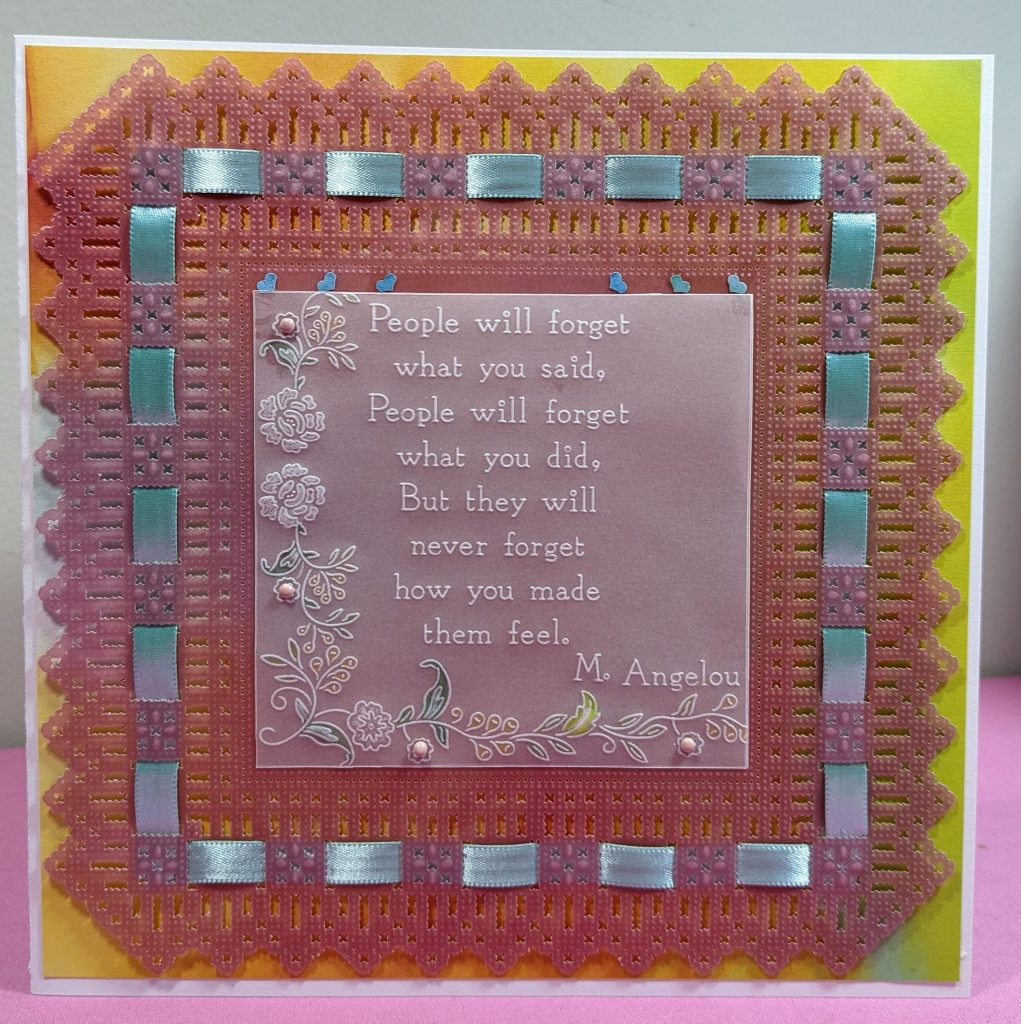 People will forget
what you said,
People will forget
what you did,
But they will
never forget
how you made
them feel.
M. Angelou